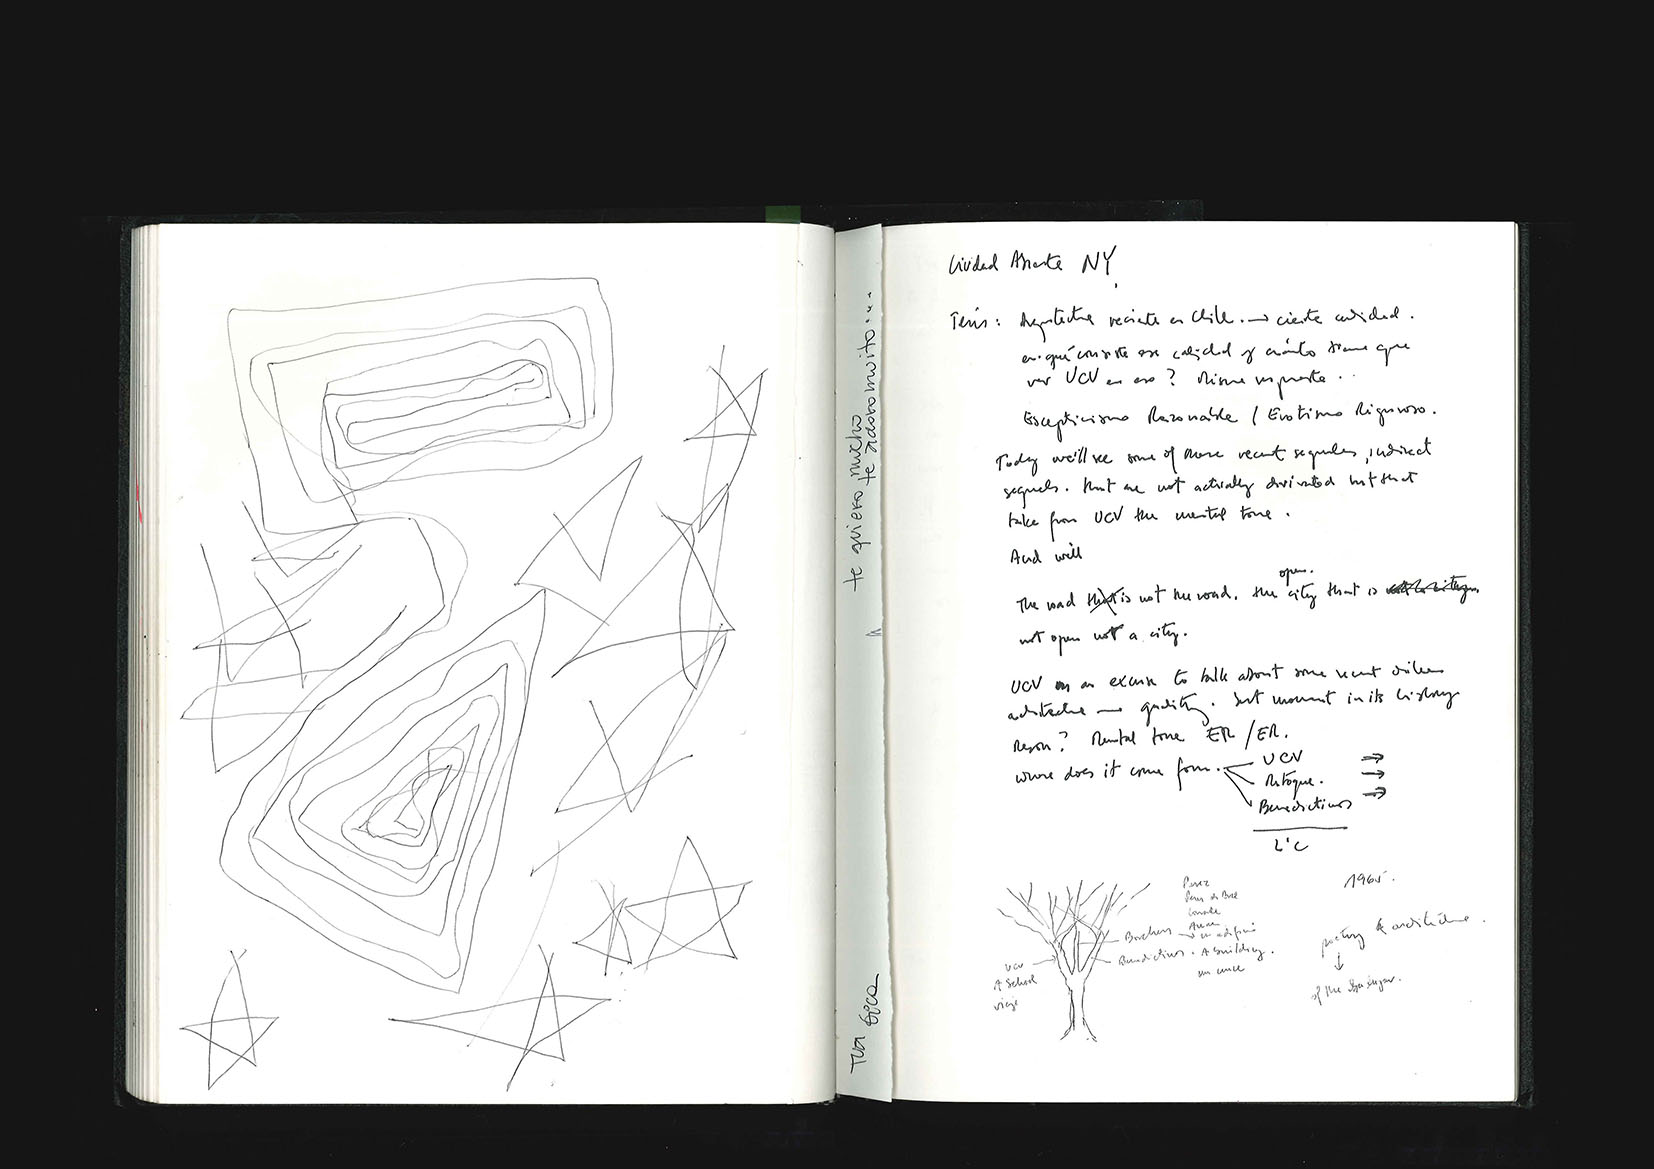 te quiero mucho
te adoro mirito...
Tua
Ciudad Abierta NY
Tesis: Arquitectura reciente en Chile. → cierta calidad.
en qué consiste esa calidad y cuánto tiene que
ver UCV en eso? Misma respuesta..
Escepticismo Razonable / Erotismo Riguroso.
Today we'll see some of those recent sequels, indirect
sequels. that are not actually derivated but that
take from UCV the mental tone.
And will
open.
The road is not the road. the city that is
not open not a city.
UCV as an excuse to talk about some recent chilean
architecture → quality. best moment in its history
Reason? Mental tone ER/ER.
where does it come from.
UCV
Benedictinos
1965.
Borchers
UCV
Benedictinos. A building.
A School
viaje
poetry & architecture.
of the